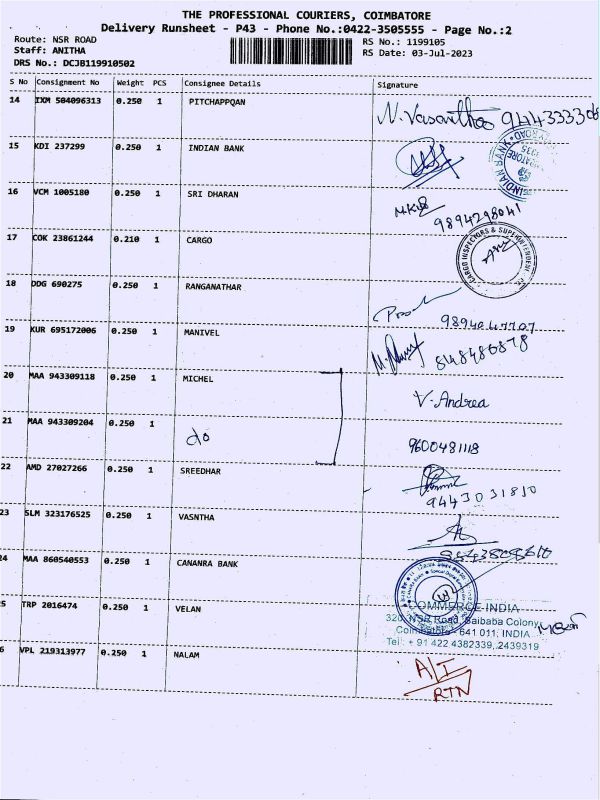 THE PROFESSIONAL COURIERS, COIMBATORE
Delivery Runsheet - P43 - Phone No.:0422-3505555 - Page No.:2
Route: NSR ROAD
RS No.: 1199105
Staff: ANITHA
RS Date: 03-Jul-2023
DRS No.: DCJB119910502
S No Consignment No Weight PCS Consignee Details Signature
14 IXM 504096313 0.250 1 PITCHAPPQAN N. Vasantha 944333306
15 KDI 237299 0.250 1 INDIAN BANK
16 VCM 1005180 0.250 1 SRI DHARAN
9894298041
17 COK 23861244 0.210 1 CARGO
CARGO INSPECTORS & SUPERINTENDENT
18 DDG 690275 0.250 1 RANGANATHAR
9894047707
19 KUR 695172006 0.250 1 MANIVEL
20 MAA 943309118 0.250 1 MICHEL V. Andrea
21 MAA 943309204 0.250 1 do 9600481118
22 AMD 27027266 0.250 1 SREEDHAR
9443031810
23 SLM 323176525 0.250 1 VASNTHA
24 MAA 860540553 0.250 1 CANANRA BANK
5 TRP 2016474 0.250 1 VELAN
COMMERCE INDIA
320, NSR Road, Saibaba Colony
Coimbatore - 641 011, INDIA
Tel : + 91 422 4382339, 2439319
6 VPL 219313977 0.250 1 NALAM A/I
RTN